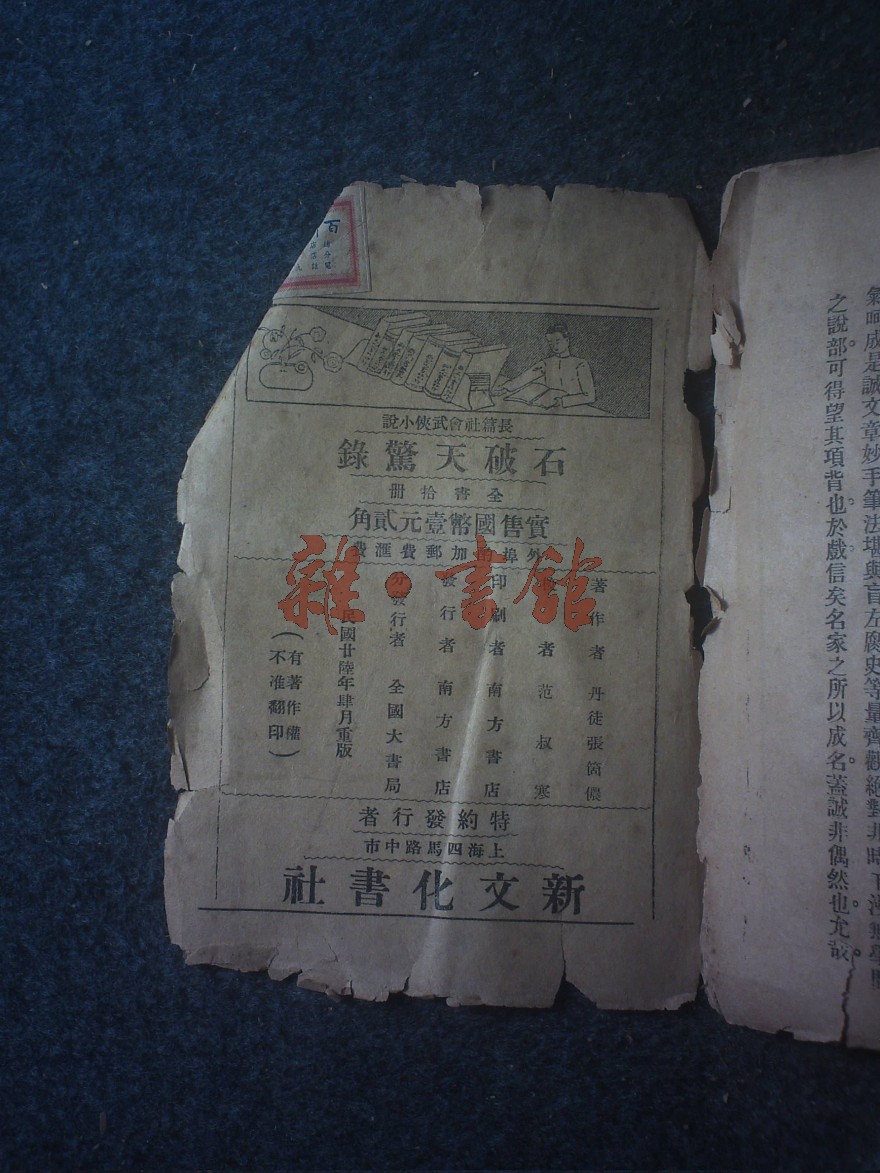 長篇社會武俠小說
石破天驚錄
全書拾册
實售國幣壹元貳角
外埠酌加郵費滙費
著作者 丹徒張箇儂
者 范叔寒
印刷者 南方書店
發行者 南方書店
分發行者 全國大書局
民國廿陸年肆月重版
(有著作權
不准翻印)
特約發行者
上海四馬路中市
新文化書社
雜·書館
成是誠文章妙手筆法堪與盲左腐史等量齊觀絕對非時下淺
之說部可得望其項背也於戲信矣名家之所以成名蓋誠非偶然也允